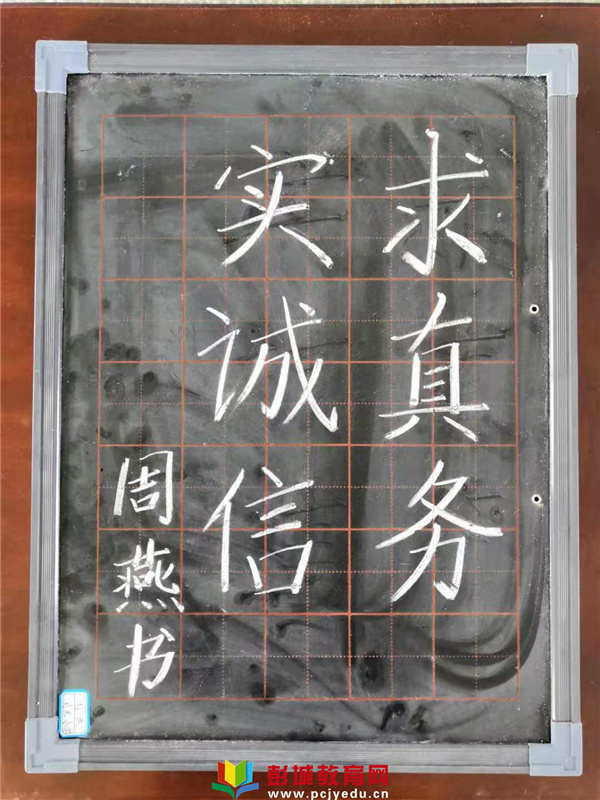 求真务
实诚信
周燕书
彭城教育网
www.pcjyedu.cn